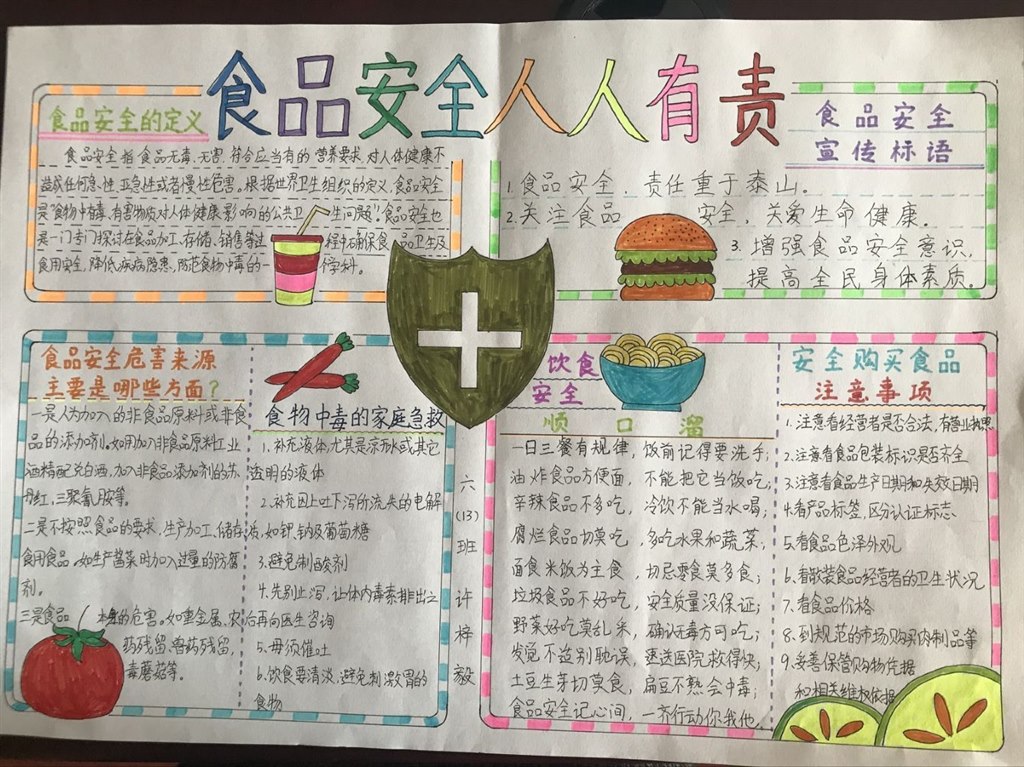 食品安全人人有责
食品安全的定义
食品安全指食品无毒、无害,符合应当有的营养要求,对人体健康不
造成任何急性、亚急性或者慢性危害。根据世界卫生组织的定义,食品安全
是"食物中有毒、有害物质对人体健康影响的公共卫生问题"。食品安全也
是一门专门探讨在食品加工、存储、销售等过程中确保食品卫生及
食用安全,降低疾病隐患,防范食物中毒的一学科。
食品安全
宣传标语
1.食品安全,责任重于泰山。
2.关注食品安全,关爱生命健康。
3.增强食品安全意识,
提高全民身体素质。
食品安全危害来源
主要是哪些方面?
一是人为加入的非食品原料或非食
品的添加剂。如用加入非食品原料工业
酒精配兑白酒,加入非食品添加剂的苏
丹红,三聚氰胺等。
二是不按照食品的要求,生产加工、储存
食用食品,如生产酱菜时加入过量的防腐
剂。
三是食品本身的危害。如重金属、农
药残留,兽药残留,
毒蘑菇等。
食物中毒的家庭急救
1.补充液体,尤其是凉开水或其它
透明的液体
2.补充因上吐下泻所流失的电解
质,如钾、钠及葡萄糖
3.避免制酸剂
4.先别止泻,让体内毒素排出之
后再向医生咨询
5.毋须催吐
6.饮食要清淡,避免刺激胃的
食物
六
(13)
班
许
梓
毅
饮食
安全
顺口溜
一日三餐有规律,饭前记得要洗手;
油炸食品方便面,不能把它当饭吃;
辛辣食品不多吃,冷饮不能当水喝;
腐烂食品切莫吃,多吃水果和蔬菜;
面食米饭为主食,切忌零食莫多食;
垃圾食品不好吃,安全质量没保证;
野菜好吃莫乱采,确认无毒方可吃;
发觉不适别耽误,速送医院救得快;
土豆生芽切莫食,扁豆不熟会中毒;
食品安全记心间,一齐行动你我他。
安全购买食品
注意事项
1.注意看经营者是否合法,有营业执照
2.注意看食品包装标识是否齐全
3.注意看食品生产日期和失效日期
4.看产品标签,区分认证标志
5.看食品色泽外观
6.看散装食品经营者的卫生状况
7.看食品价格
8.到规范的市场购买肉制品等
9.妥善保管购物凭据
和相关维权依据